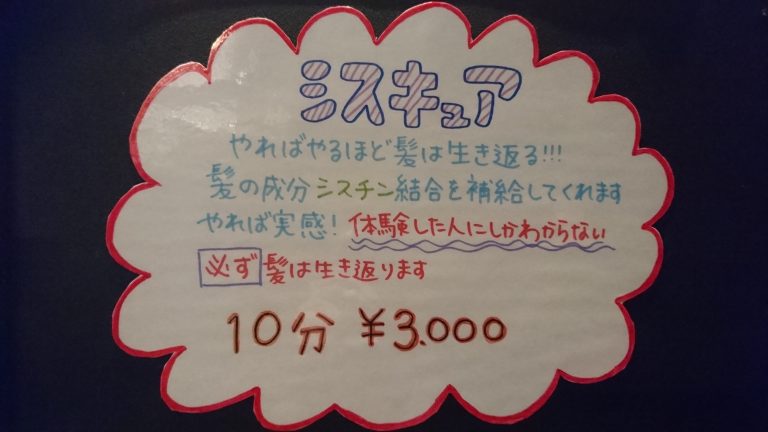 ミスキュア
やればやるほど髪は生き返る!!!
髪の成分シスチン結合を補給してくれます
やれば実感!体験した人にしかわからない
必ず髪は生き返ります
10分 ¥3.000